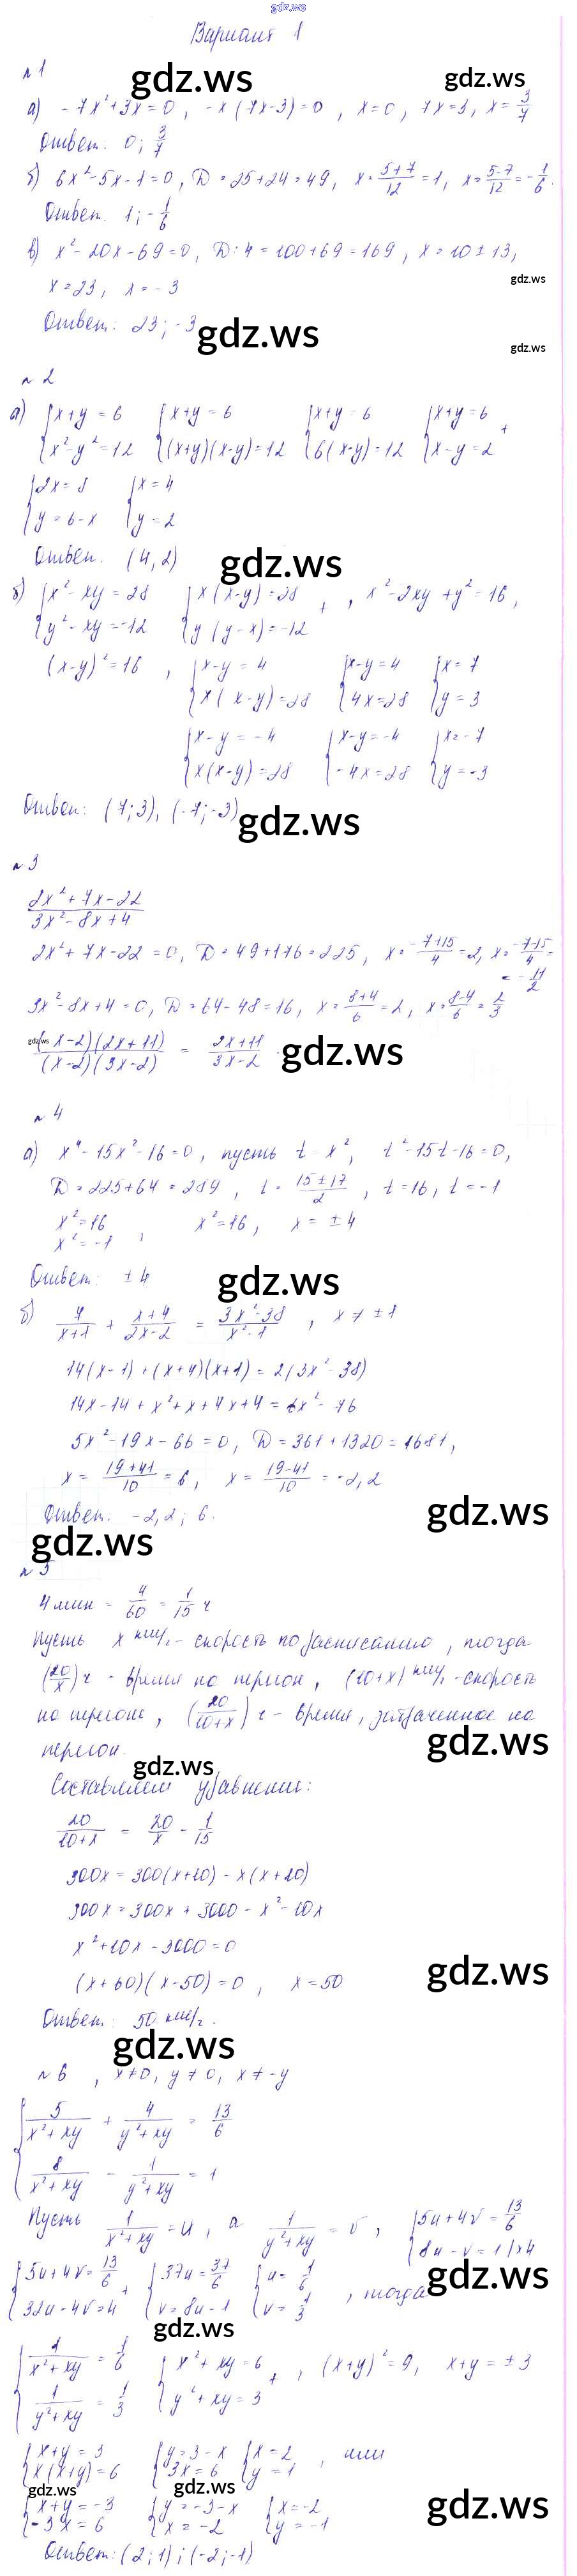 gdz.ws
Вариант 1
№1
gdz.ws gdz.ws
а) -7x²+3x=0, -x(7x-3)=0, x=0, 7x=3, x=3/7
Ответ: 0; 3/7
б) 6x²-5x-1=0, D=25+24=49, x=(5+7)/12=1, x=(5-7)/12=-1/6.
Ответ: 1; -1/6
в) x²-20x-69=0, D:4=100+69=169, x=10±13,
x=23, x=-3
gdz.ws
Ответ: 23; -3
gdz.ws
gdz.ws
№2
а) {x+y=6 {x+y=6 {x+y=6 {x+y=6 +
{x²-y²=12 {(x+y)(x-y)=12 {6(x-y)=12 {x-y=2
{2x=8 {x=4
{y=6-x {y=2
Ответ: (4,2)
gdz.ws
б) {x²-xy=28 {x(x-y)=28 + , x²-2xy+y²=16,
{y²-xy=-12 {y(y-x)=-12
(x-y)²=16, {x-y=4 {x-y=4 {x=7
{x(x-y)=28 {4x=28 {y=3
{x-y=-4 {x-y=-4 {x=-7
{x(x-y)=28 {-4x=28 {y=-3
Ответ: (7;3), (-7;-3)
gdz.ws
№3
(2x²+7x-22)/(3x²-8x+4)
2x²+7x-22=0, D=49+176=225, x=(-7+15)/4=2, x=(-7-15)/4=
=-11/2
3x²-8x+4=0, D=64-48=16, x=(8+4)/6=2, x=(8-4)/6=2/3
gdz.ws
((x-2)(2x+11))/((x-2)(3x-2)) = (2x+11)/(3x-2).
gdz.ws
№4
а) x⁴-15x²-16=0, пусть t=x², t²-15t-16=0,
D=225+64=289, t=(15±17)/2, t=16, t=-1
x²=16, x²=16, x=±4
x²=-1
Ответ: ±4
gdz.ws
б) 7/(x+1) + (x+4)/(2x-2) = (3x²-38)/(x²-1), x≠±1
14(x-1)+(x+4)(x+1)=2(3x²-38)
14x-14+x²+x+4x+4=6x²-76
5x²-19x-66=0, D=361+1320=1681,
x=(19+41)/10=6, x=(19-41)/10=-2,2
Ответ: -2,2; 6.
gdz.ws
gdz.ws
№5
4 мин = 4/60 = 1/15 ч
Пусть x км/ч - скорость по расписанию, тогда
(20/x) ч - время на перегон, (10+x) км/ч - скорость
на перегоне, (20/(10+x)) ч - время, затраченное на
перегон.
gdz.ws
gdz.ws
Составляем уравнение:
20/(10+x) = 20/x - 1/15
300x=300(x+10)-x(x+10)
300x=300x+3000-x²-10x
x²+10x-3000=0
(x+60)(x-50)=0, x=50
gdz.ws
Ответ: 50 км/ч.
gdz.ws
№6, x≠0, y≠0, x≠-y
{5/(x²+xy) + 4/(y²+xy) = 13/6
{8/(x²+xy) - 1/(y²+xy) = 1
Пусть 1/(x²+xy)=u, а 1/(y²+xy)=v, {5u+4v=13/6
{8u-v=1/×4
gdz.ws
{5u+4v=13/6 + , {37u=37/6 {u=1/6
{32u-4v=4 {v=8u-1 {v=1/3, тогда
gdz.ws
{1/(x²+xy)=1/6 {x²+xy=6 + , (x+y)²=9, x+y=±3
{1/(y²+xy)=1/3 {y²+xy=3
{x+y=3 {y=3-x {x=2 , или
{x(x+y)=6 {3x=6 {y=1
gdz.ws gdz.ws
gdz.ws
{x+y=-3 {y=-3-x {x=-2
{-3x=6 {x=-2 {y=-1
Ответ: (2;1); (-2;-1)